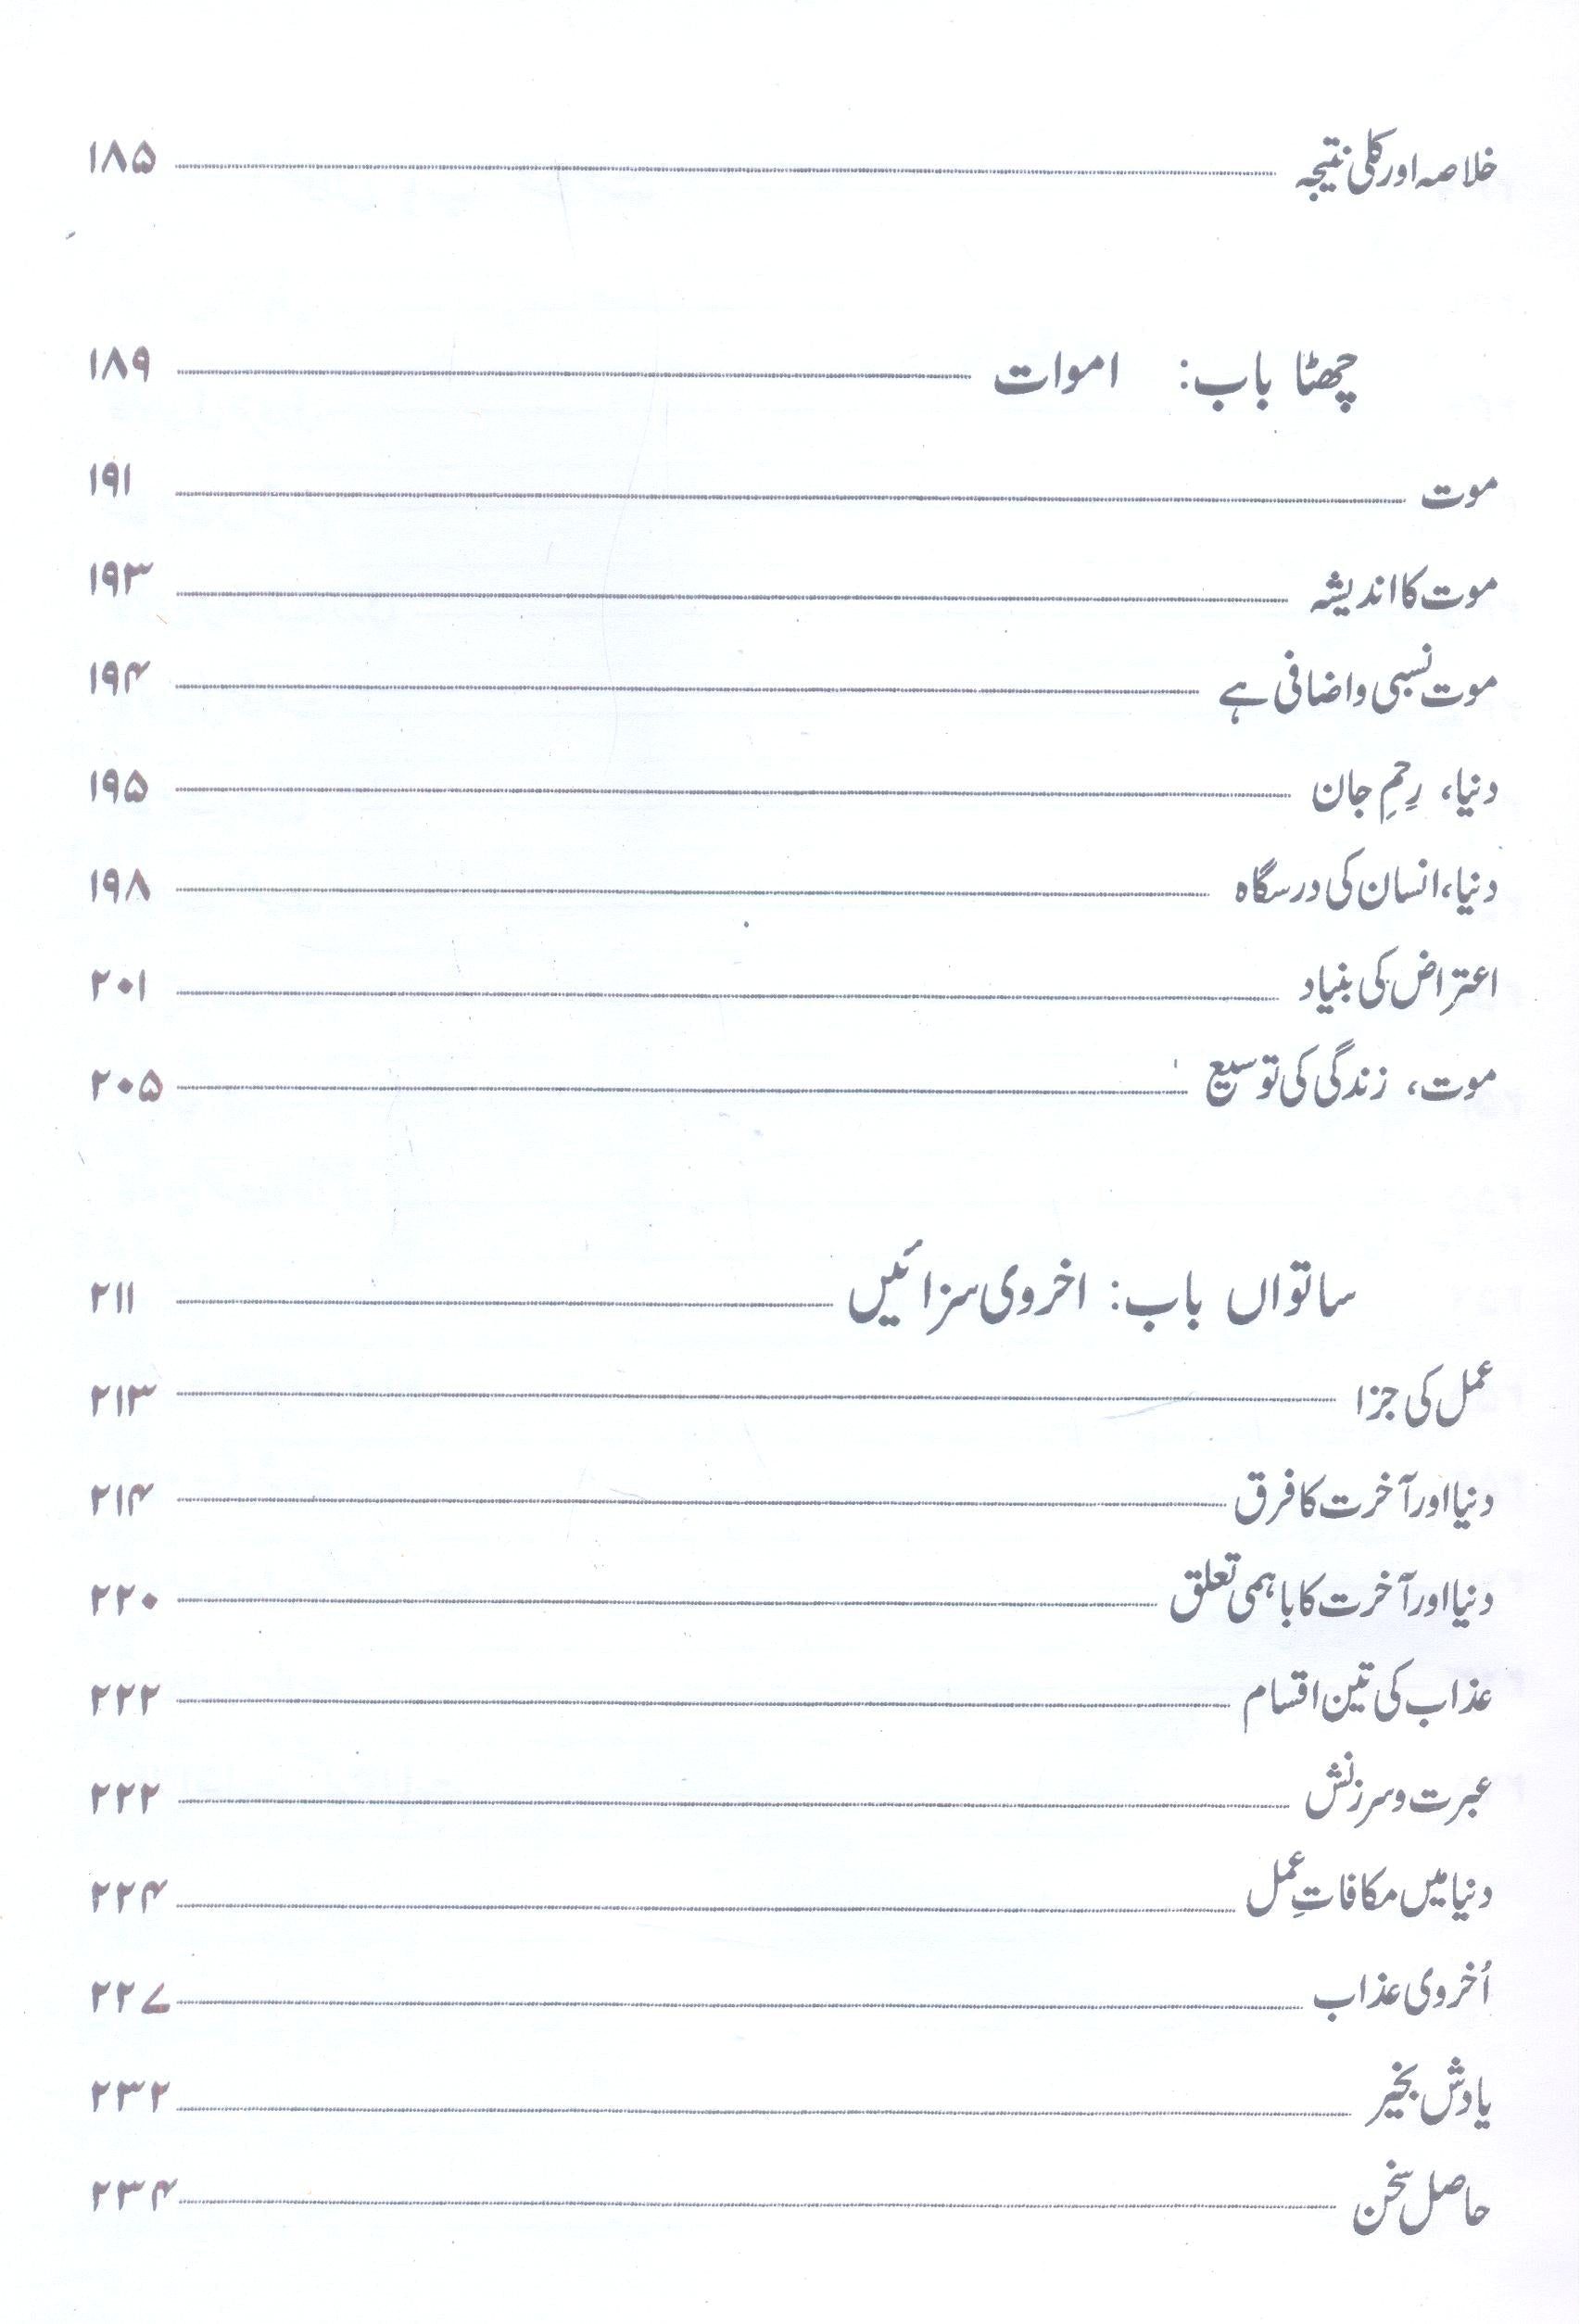 خلاصہ اور کلی نتیجہ ۱۸۵
چھٹا باب: اموات ۱۸۹
موت ۱۹۱
موت کا اندیشہ ۱۹۳
موت نسبی و اضافی ہے ۱۹۴
دنیا، رِحمِ جان ۱۹۵
دنیا، انسان کی درسگاہ ۱۹۸
اعتراض کی بنیاد ۲۰۱
موت، زندگی کی توسیع ۲۰۵
ساتواں باب: اخروی سزائیں ۲۱۱
عمل کی جزا ۲۱۳
دنیا اور آخرت کا فرق ۲۱۴
دنیا اور آخرت کا باہمی تعلق ۲۲۰
عذاب کی تین اقسام ۲۲۲
عبرت و سرزنش ۲۲۲
دنیا میں مکافاتِ عمل ۲۲۴
اُخروی عذاب ۲۲۷
یادش بخیر ۲۳۲
حاصل سخن ۲۳۴